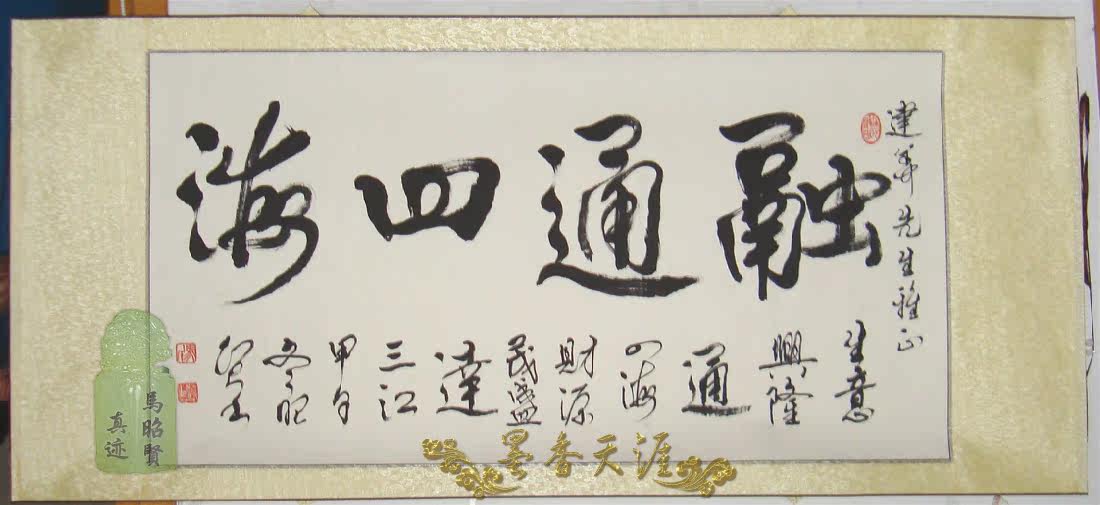 建華先生雅正
融通四海
生意
興隆
通
四海
財源
茂盛
達
三江
甲午
冬昭
賢書
馬昭賢
真迹
墨香天涯